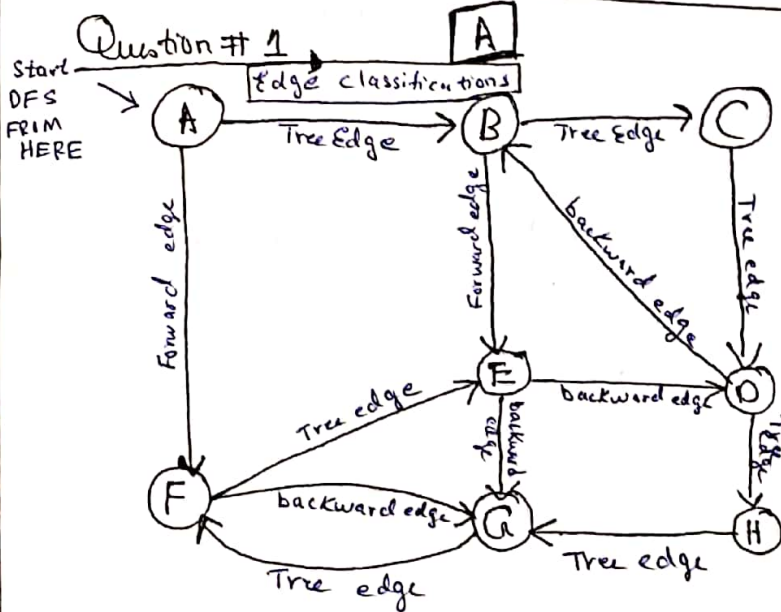 Question # 1
A
Start
DFS
FRIM
HERE
Edge classifications
A
Tree Edge
B
Tree Edge
C
Forward edge
Forward edge
backward edge
Tree edge
E
backward edge
D
Tree edge
backward
edge
Tree
edge
F
backward edge
G
Tree edge
H
Tree edge